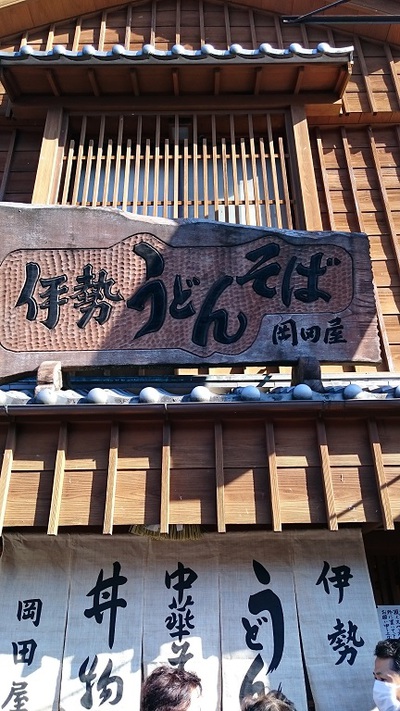 伊勢うどんそば
岡田屋
伊勢
うどん
中華そ
丼物
岡田屋